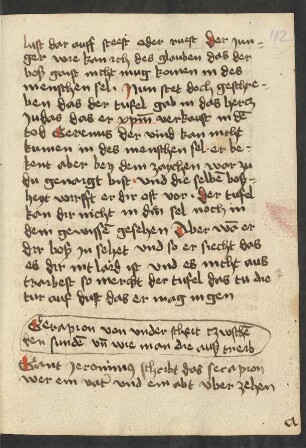 112
lust dar auff steest oder ruest Der Jun-
ger wie kan ich des glauben das der
boß gaist nicht mug komen in des
menschen sel · Nun stet doch geschri-
ben das der tufel gab in das hertz
Judas das er xpm verkauft in dē
tod Serenus der vind kan nicht
kumen in des menschen sel · er be-
kent aber bey dem zaychen war zu
du genaigt bist · und die selbe boß-
heyt wirfft er dir fur · der tufel
kan dir nicht in dain sel noch in
dem gewisse gesehen Aber wan er
dir boß in setzet und so er siecht das
es dir nit laid ist und es nicht auß
traibest so merckt der tufel das tu die
tur auff dust das er mag in gen
Serapion von underscheit tzwische
den sunden vn wie man die auß treib
Sant Jeronimus schribt das serapion
wer ein vater und ein abt uber zehen